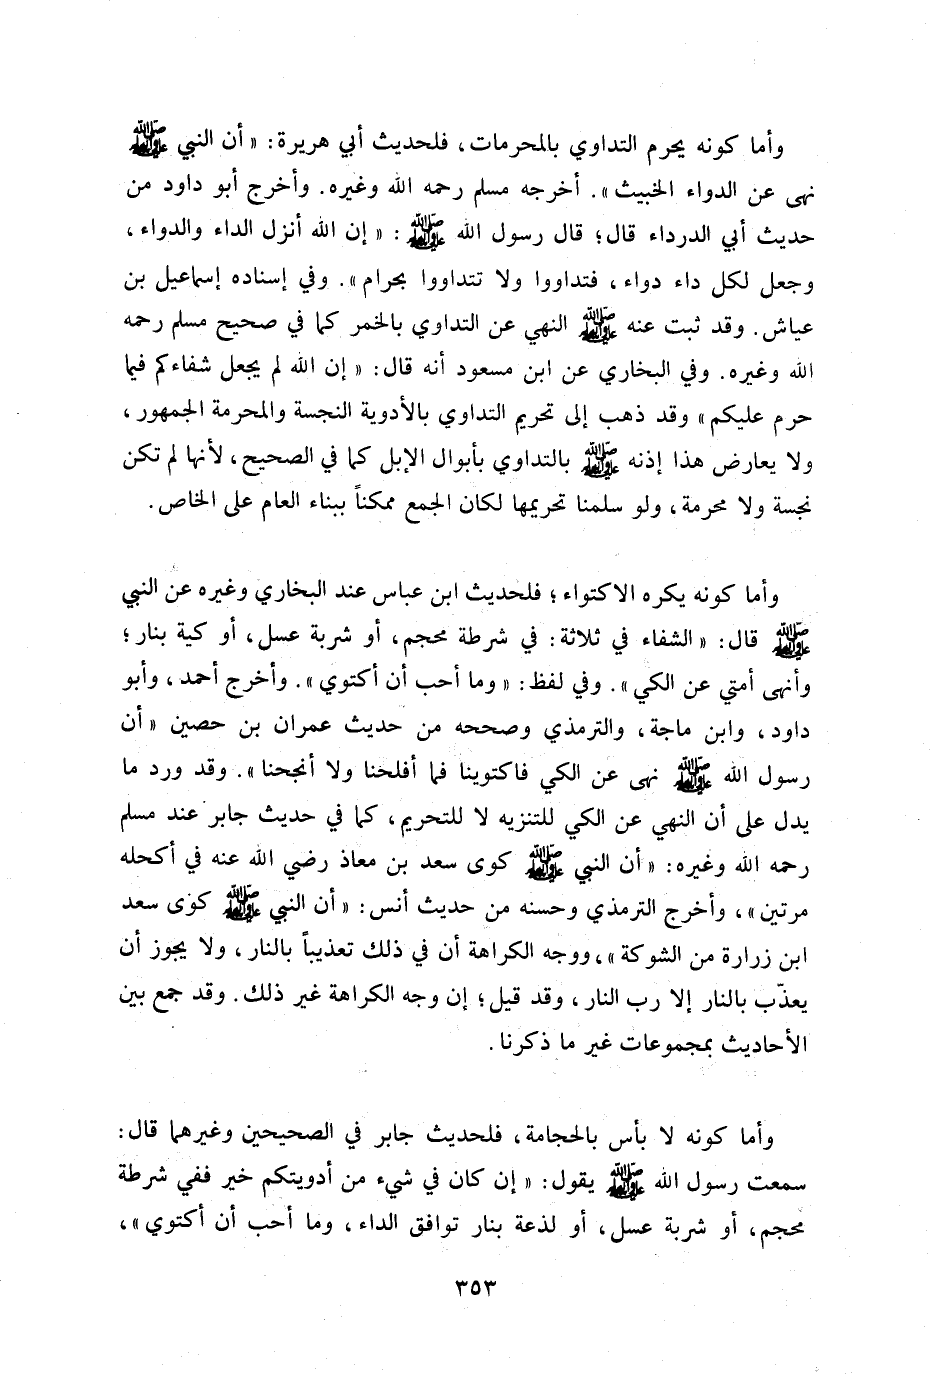 وأما كونه يحرم التداوي بالمحرمات، فلحديث أبي هريرة: « أن النبي ﷺ
نهى عن الدواء الخبيث ». أخرجه مسلم رحمه الله وغيره. وأخرج أبو داود من
حديث أبي الدرداء قال؛ قال رسول الله ﷺ : « إن الله أنزل الداء والدواء،
وجعل لكل داء دواء، فتداووا ولا تتداووا بحرام ». وفي إسناده إسماعيل بن
عياش. وقد ثبت عنه ﷺ النهي عن التداوي بالخمر كما في صحيح مسلم رحمه
الله وغيره. وفي البخاري عن ابن مسعود أنه قال: « إن الله لم يجعل شفاءكم فيما
حرم عليكم » وقد ذهب إلى تحريم التداوي بالأدوية النجسة والمحرمة الجمهور،
ولا يعارض هذا إذنه ﷺ بالتداوي بأبوال الإبل كما في الصحيح، لأنها لم تكن
نجسة ولا محرمة، ولو سلمنا تحريمها لكان الجمع ممكناً ببناء العام على الخاص.
وأما كونه يكره الاكتواء؛ فلحديث ابن عباس عند البخاري وغيره عن النبي
ﷺ قال: « الشفاء في ثلاثة: في شرطة محجم، أو شربة عسل، أو كية بنار؛
وأنهى أمتي عن الكي ». وفي لفظ: « وما أحب أن أكتوي ». وأخرج أحمد، وأبو
داود، وابن ماجة، والترمذي وصححه من حديث عمران بن حصين « أن
رسول الله ﷺ نهى عن الكي فاكتوينا فما أفلحنا ولا أنجحنا ». وقد ورد ما
يدل على أن النهي عن الكي للتنزيه لا للتحريم، كما في حديث جابر عند مسلم
رحمه الله وغيره: « أن النبي ﷺ كوى سعد بن معاذ رضي الله عنه في أكحله
مرتين »، وأخرج الترمذي وحسنه من حديث أنس: « أن النبي ﷺ كوى سعد
ابن زرارة من الشوكة »، ووجه الكراهة أن في ذلك تعذيباً بالنار، ولا يجوز أن
يعذّب بالنار إلا رب النار، وقد قيل؛ إن وجه الكراهة غير ذلك. وقد جمع بين
الأحاديث بمجموعات غير ما ذكرنا.
وأما كونه لا بأس بالحجامة، فلحديث جابر في الصحيحين وغيرهما قال:
سمعت رسول الله ﷺ يقول: « إن كان في شيء من أدويتكم خير ففي شرطة
محجم، أو شربة عسل، أو لذعة بنار توافق الداء، وما أحب أن أكتوي »،
٣٥٣